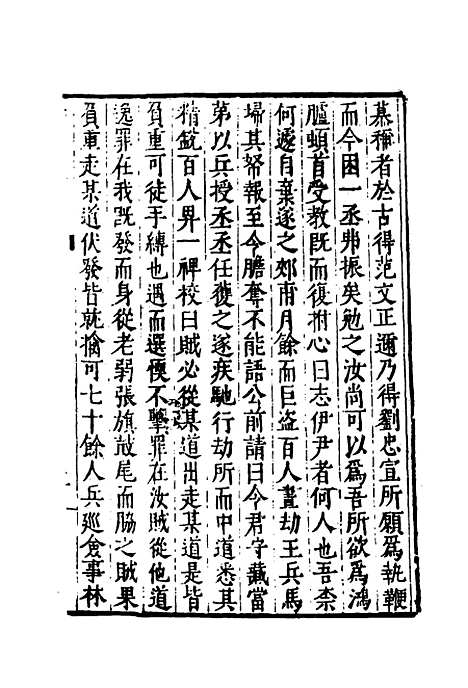 慕稱者於古得范文正邇乃得劉忠宣所願爲執鞭
而今困一丞弗振矣勉之汝尚可以爲吾所欲爲鴻
臚頓首受教既而復拊心曰志伊尹者何人也吾柰
何遽自棄遂之郊甫月餘而巨盜百人晝劫王兵馬
埽其帑報至令膽奪不能語公前請曰今君守藏當
第以兵授丞丞任復之遂疾馳行劫所而中道悉其
精銳百人畀一裨校曰賊必從某道出走某道是皆
負重可徒手縛也遇而選愞不擊罪在汝賊從他道
逸罪在我既發而身從老弱張旗鼓尾而脇之賊果
負重走某道伏發皆就擒可七十餘人兵廵僉事林